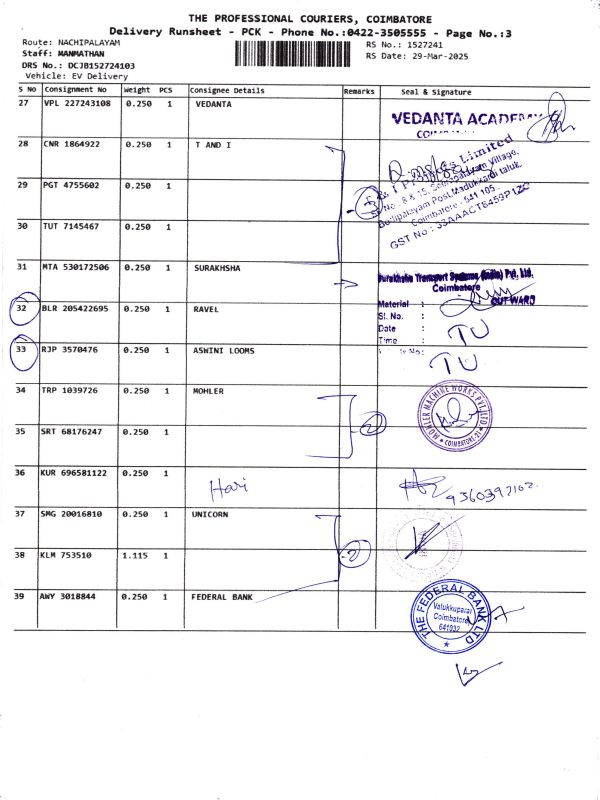 THE PROFESSIONAL COURIERS, COIMBATORE
Delivery Runsheet - PCK - Phone No.:0422-3505555 - Page No.:3
Route: NACHIPALAYAM
RS No.: 1527241
Staff: MANMATHAN
RS Date: 29-Mar-2025
DRS No.: DCJB152724103
Vehicle: EV Delivery
S No Consignment No Weight PCS Consignee Details Remarks Seal & Signature
27 VPL 227243108 0.250 1 VEDANTA
VEDANTA ACADEMY
28 CNR 1864922 0.250 1 T AND I
29 PGT 4755602 0.250 1
Coimbatore - 641 105.
GST No : 33AAACT6459P1ZC
30 TUT 7145467 0.250 1
31 MTA 530172506 0.250 1 SURAKHSHA
Surakhsha Transport Systems (India) Pvt. Ltd.
Coimbatore
32 BLR 205422695 0.250 1 RAVEL
Material : OUTWARD
Sl. No. :
Date :
Time :
TU
33 RJP 3570476 0.250 1 ASWINI LOOMS
TU
34 TRP 1039726 0.250 1 MOHLER
MOHLER MACHINE WORKS PVT. LTD
COIMBATORE-21
2
35 SRT 68176247 0.250 1
36 KUR 696581122 0.250 1 Hari
37 SMG 20016810 0.250 1 UNICORN
2
38 KLM 753510 1.115 1
39 AWY 3018844 0.250 1 FEDERAL BANK
THE FEDERAL BANK LTD
Valukkuparai
Coimbatore
641032